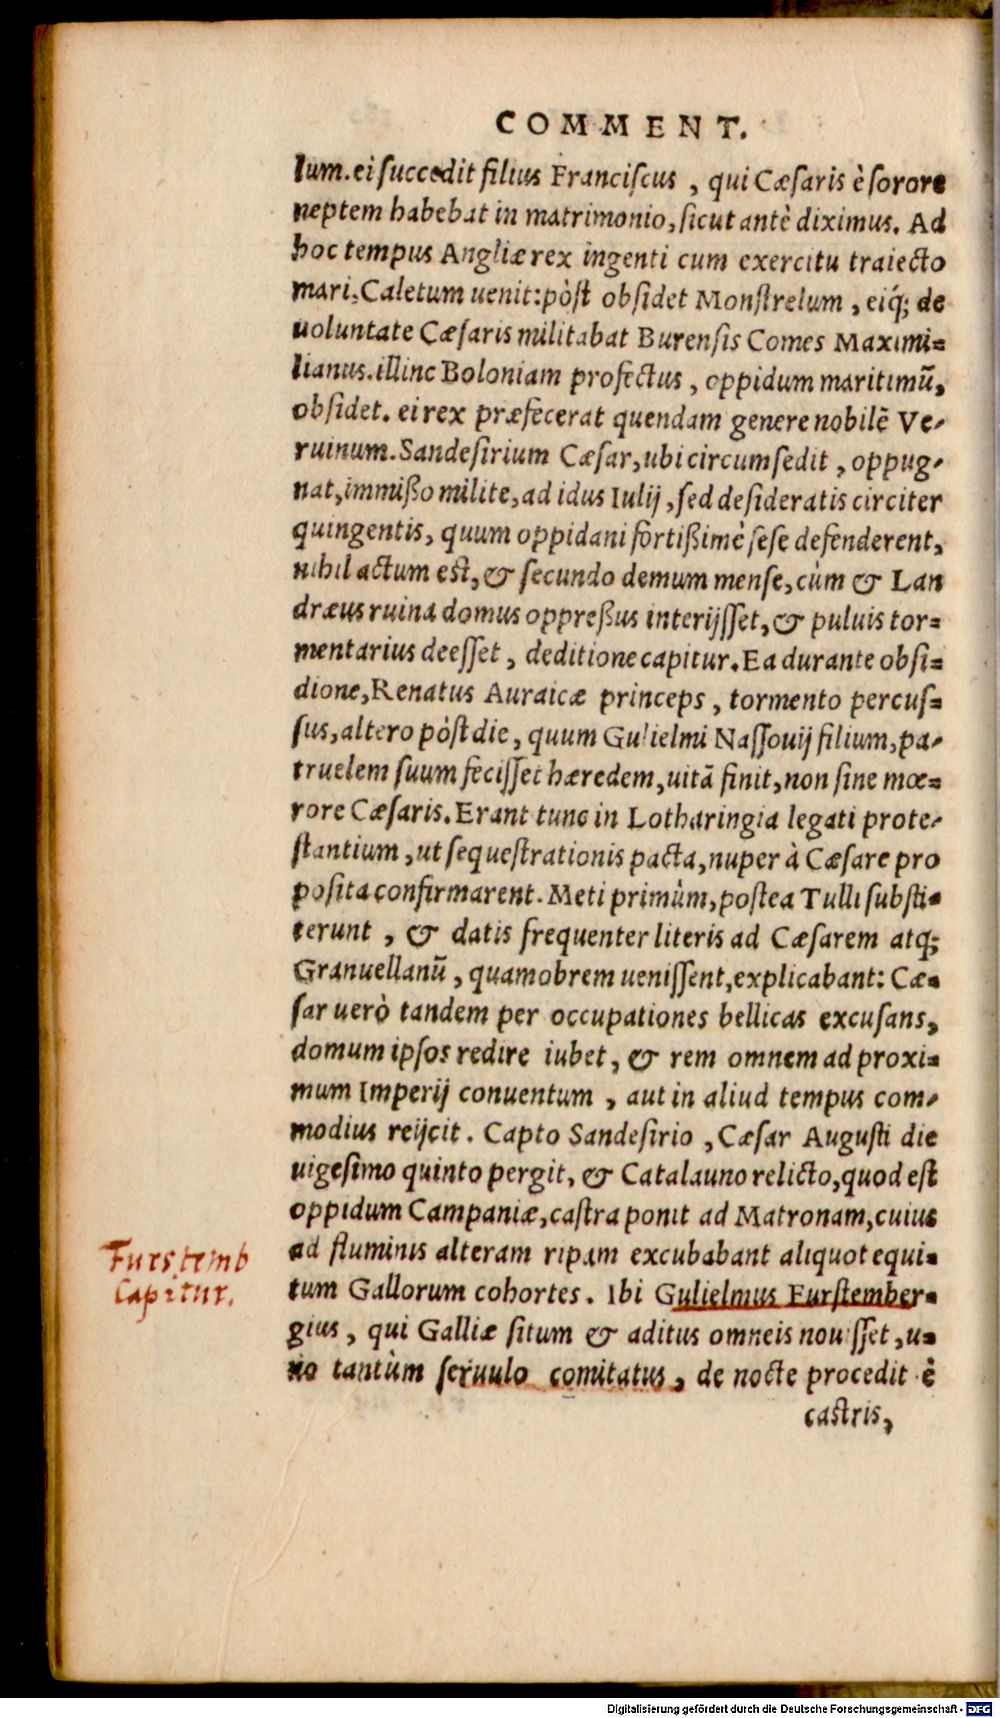 COMMENT.
lum. ei succedit filius Franciscus, qui Cæsaris è sorore
neptem habebat in matrimonio, sicut antè diximus. Ad
hoc tempus Angliæ rex ingenti cum exercitu traiecto
mari, Caletum uenit: pòst obsidet Monstrelum, eiq́; de
uoluntate Cæsaris militabat Burensis Comes Maximi=
lianus. illinc Boloniam profectus, oppidum maritimũ,
obsidet. ei rex præfecerat quendam genere nobilẽ Ve-
ruinum. Sandesirium Cæsar, ubi circumsedit, oppug-
nat, immißo milite, ad idus Iulij, sed desideratis circiter
quingentis, quum oppidani fortißimè sese defenderent,
nihil actum est, & secundo demum mense, cùm & Lan
dræus ruina domus oppreßus interijsset, & puluis tor=
mentarius deesset, deditione capitur. Ea durante obsi=
dione, Renatus Auraicæ princeps, tormento percus=
sus, altero pòst die, quum Gulielmi Nassouij filium, pa-
truelem suum fecisset hæredem, uitã finit, non sine mœ=
rore Cæsaris. Erant tunc in Lotharingia legati prote-
stantium, ut sequestrationis pacta, nuper à Cæsare pro
posita confirmarent. Meti primùm, postea Tulli substi=
terunt, & datis frequenter literis ad Cæsarem atq;
Granuellanũ, quamobrem uenissent, explicabant: Cæ=
sar uerò tandem per occupationes bellicas excusans,
domum ipsos redire iubet, & rem omnem ad proxi=
mum Imperij conuentum, aut in aliud tempus com-
modius reijcit. Capto Sandesirio, Cæsar Augusti die
uigesimo quinto pergit, & Catalauno relicto, quod est
oppidum Campaniæ, castra ponit ad Matronam, cuius
ad fluminis alteram ripam excubabant aliquot equi=
tum Gallorum cohortes. Ibi Gulielmus Furstember=
gius, qui Galliæ situm & aditus omneis nouisset, u=
no tantùm seruulo comitatus, de nocte procedit è
castris,
Furstemb
Capitur.
Digitalisierung gefördert durch die Deutsche Forschungsgemeinschaft - DFG